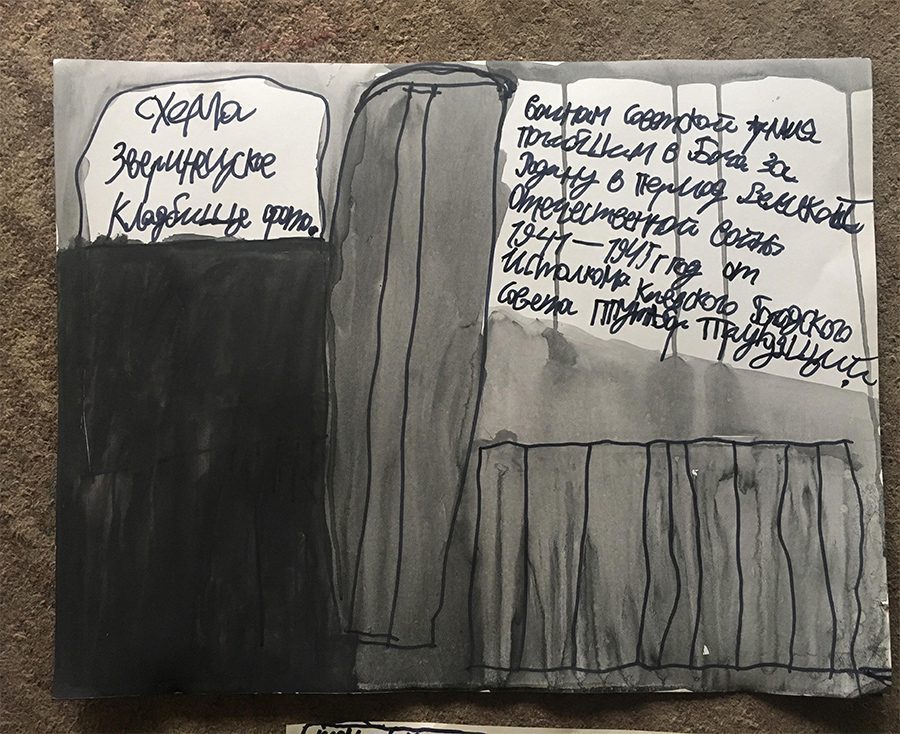 схема
Зверинецкое
Кладбище фото.
воинам Советской Армия
погибшим в Боях за
Родину в период Великой
Отечественной войны
1941—1945 г год от
Исполкома Киевского Городского
совета Трудящий.